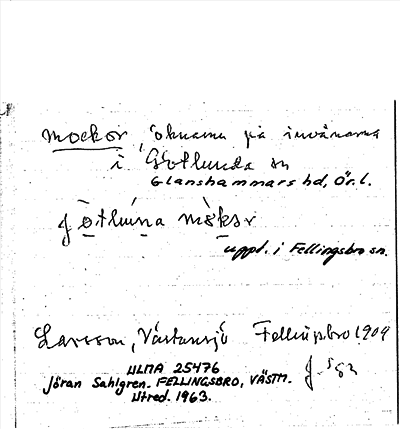 mockor, öknamn på invånarna
i Götlunda sn
Glanshammars hd, Ör. l.
götluna mökor
uppt. i Fellingsbro sn.
Larsson, Västansjö Fellingsbro 1909
ULMA 25476
Jöran Sahlgren. FELLINGSBRO, VÄSTM.
Utred. 1963.